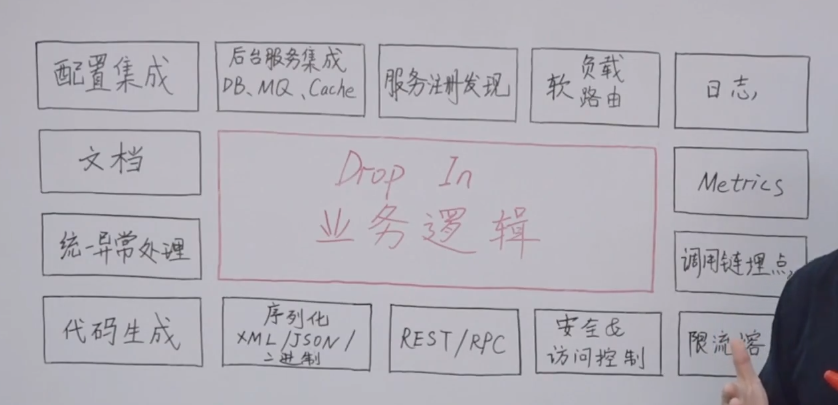 配置集成
后台服务集成
DB、MQ、Cache
服务注册发现
软负载
路由
日志
文档
Drop In
业务逻辑
Metrics
统一异常处理
调用链埋点
代码生成
序列化
XML/JSON/
二进制
REST/RPC
安全&
访问控制
限流